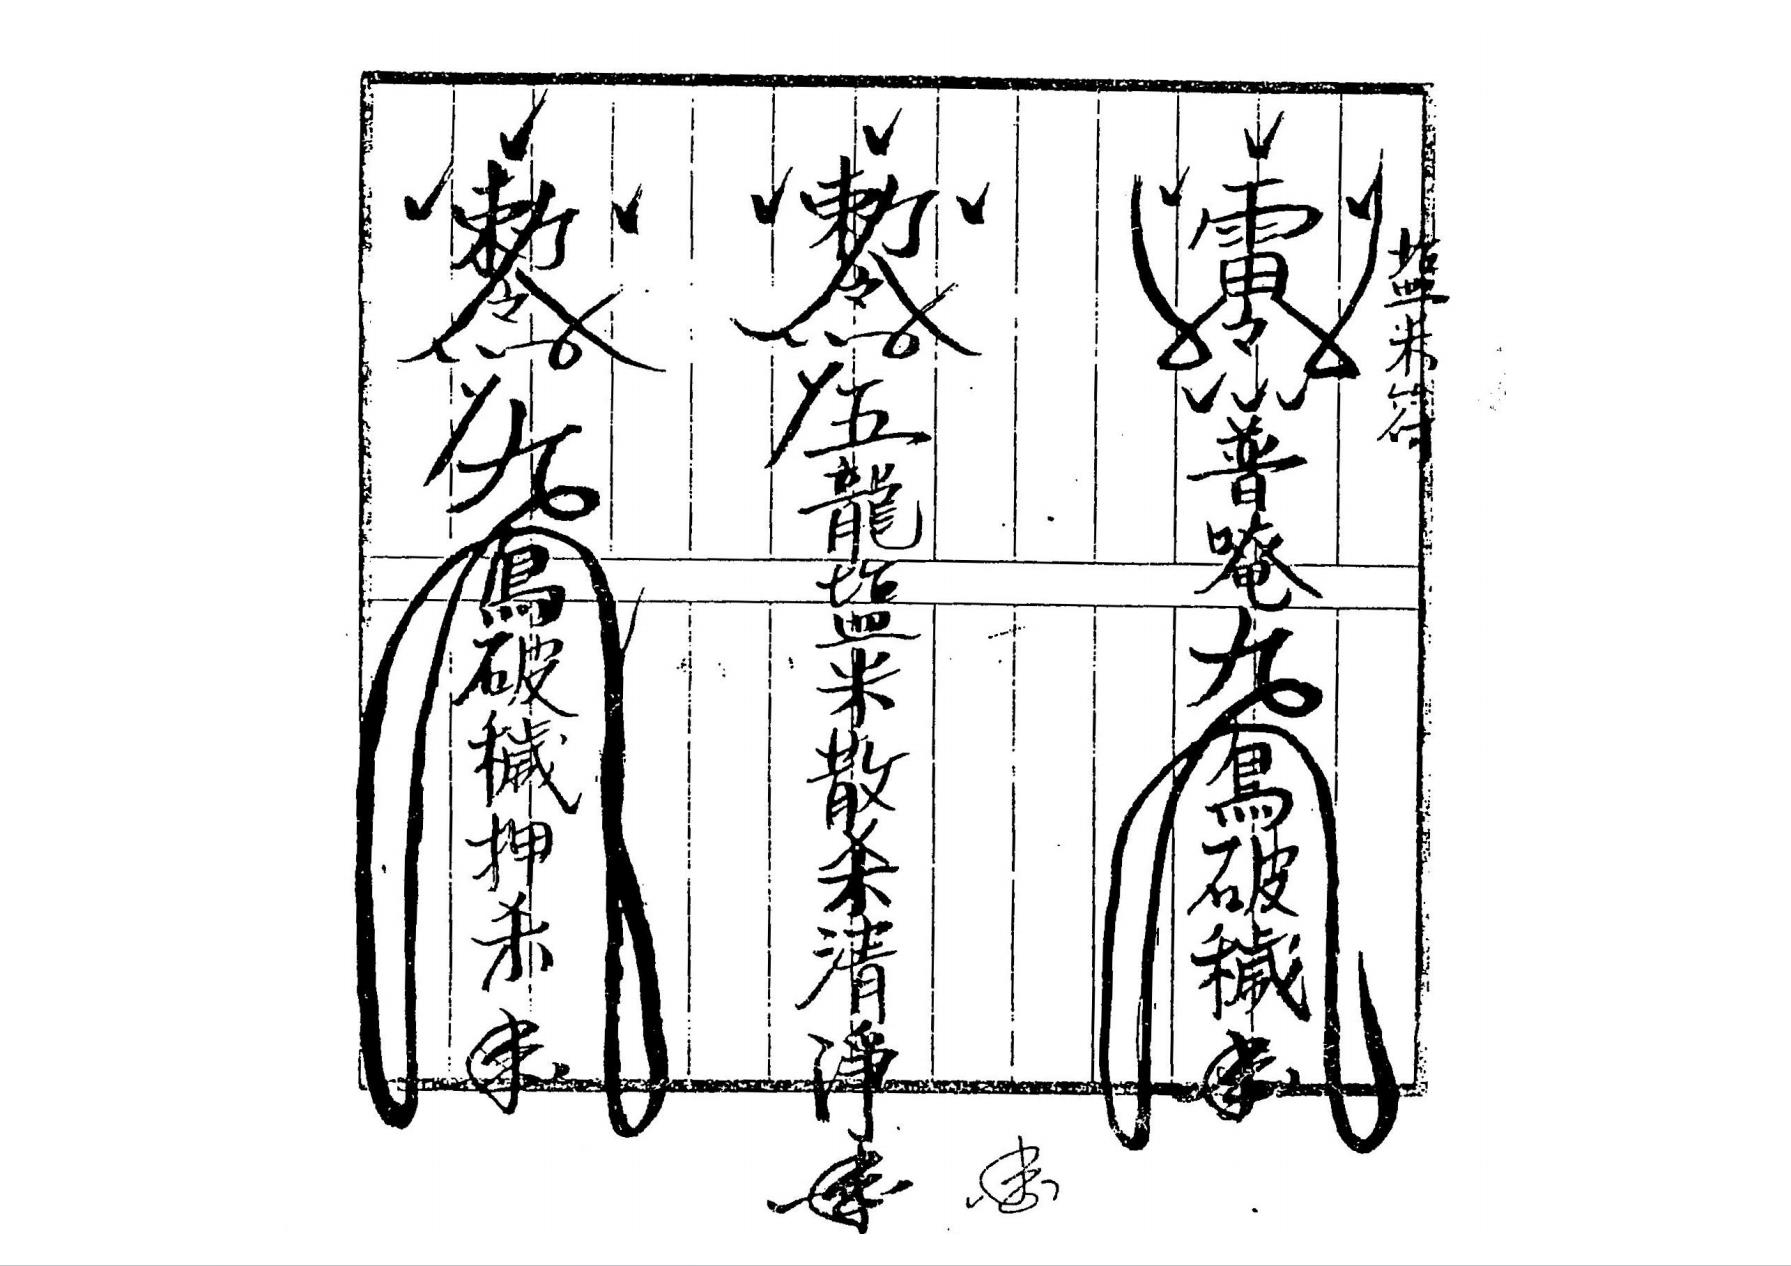 塩米符
雷令普唵九鳥破穢
勅令五龍塩米散杀清淨
勅令九鳥破穢押杀